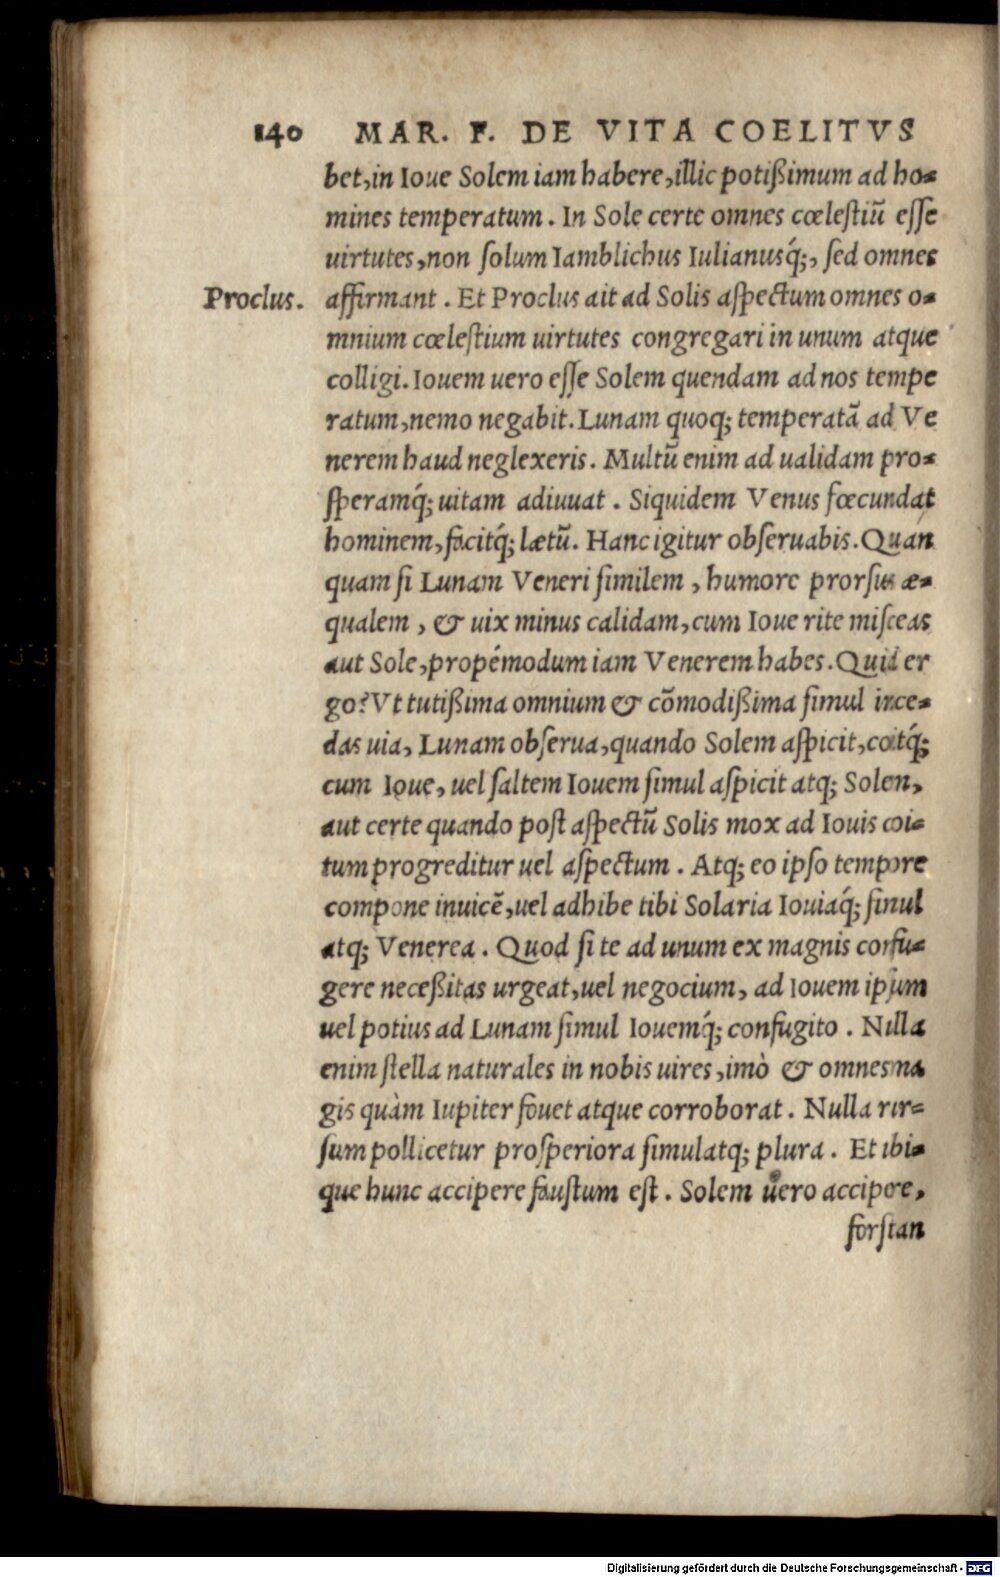 140 MAR. F. DE VITA COELITVS
bet, in Ioue Solem iam habere, illic potißimum ad ho-
mines temperatum. In Sole certe omnes cœleſtiũ eſſe
uirtutes, non ſolum Iamblichus Iulianusq́;, ſed omnes
Proclus. affirmant. Et Proclus ait ad Solis aſpectum omnes o-
mnium cœleſtium uirtutes congregari in unum atque
colligi. Iouem uero eſſe Solem quendam ad nos tempe
ratum, nemo negabit. Lunam quoq; temperatã ad Ve
nerem haud neglexeris. Multũ enim ad ualidam pro-
ſperamq́; uitam adiuuat. Siquidem Venus fœcundat
hominem, facitq́; lætũ. Hanc igitur obſeruabis. Quan
quam ſi Lunam Veneri ſimilem, humore prorſus æ-
qualem, & uix minus calidam, cum Ioue rite miſceas
aut Sole, propémodum iam Venerem habes. Quid er
go? Vt tutißima omnium & cõmodißima ſimul ince-
das uia, Lunam obſerua, quando Solem aſpicit, coitq́;
cum Ioue, uel ſaltem Iouem ſimul aſpicit atq; Solem,
aut certe quando poſt aſpectũ Solis mox ad Iouis coi-
tum progreditur uel aſpectum. Atq; eo ipſo tempore
compone inuicẽ, uel adhibe tibi Solaria Iouiaq́; ſimul
atq; Venerea. Quod ſi te ad unum ex magnis confu-
gere neceßitas urgeat, uel negocium, ad Iouem ipſum
uel potius ad Lunam ſimul Iouemq́; confugito. Nulla
enim ſtella naturales in nobis uires, imò & omnes ma
gis quàm Iupiter fouet atque corroborat. Nulla rur-
ſum pollicetur proſperiora ſimulatq; plura. Et ibi-
que hunc accipere fauſtum eſt. Solem uero accipere,
forſtan
Digitalisierung gefördert durch die Deutsche Forschungsgemeinschaft - DFG